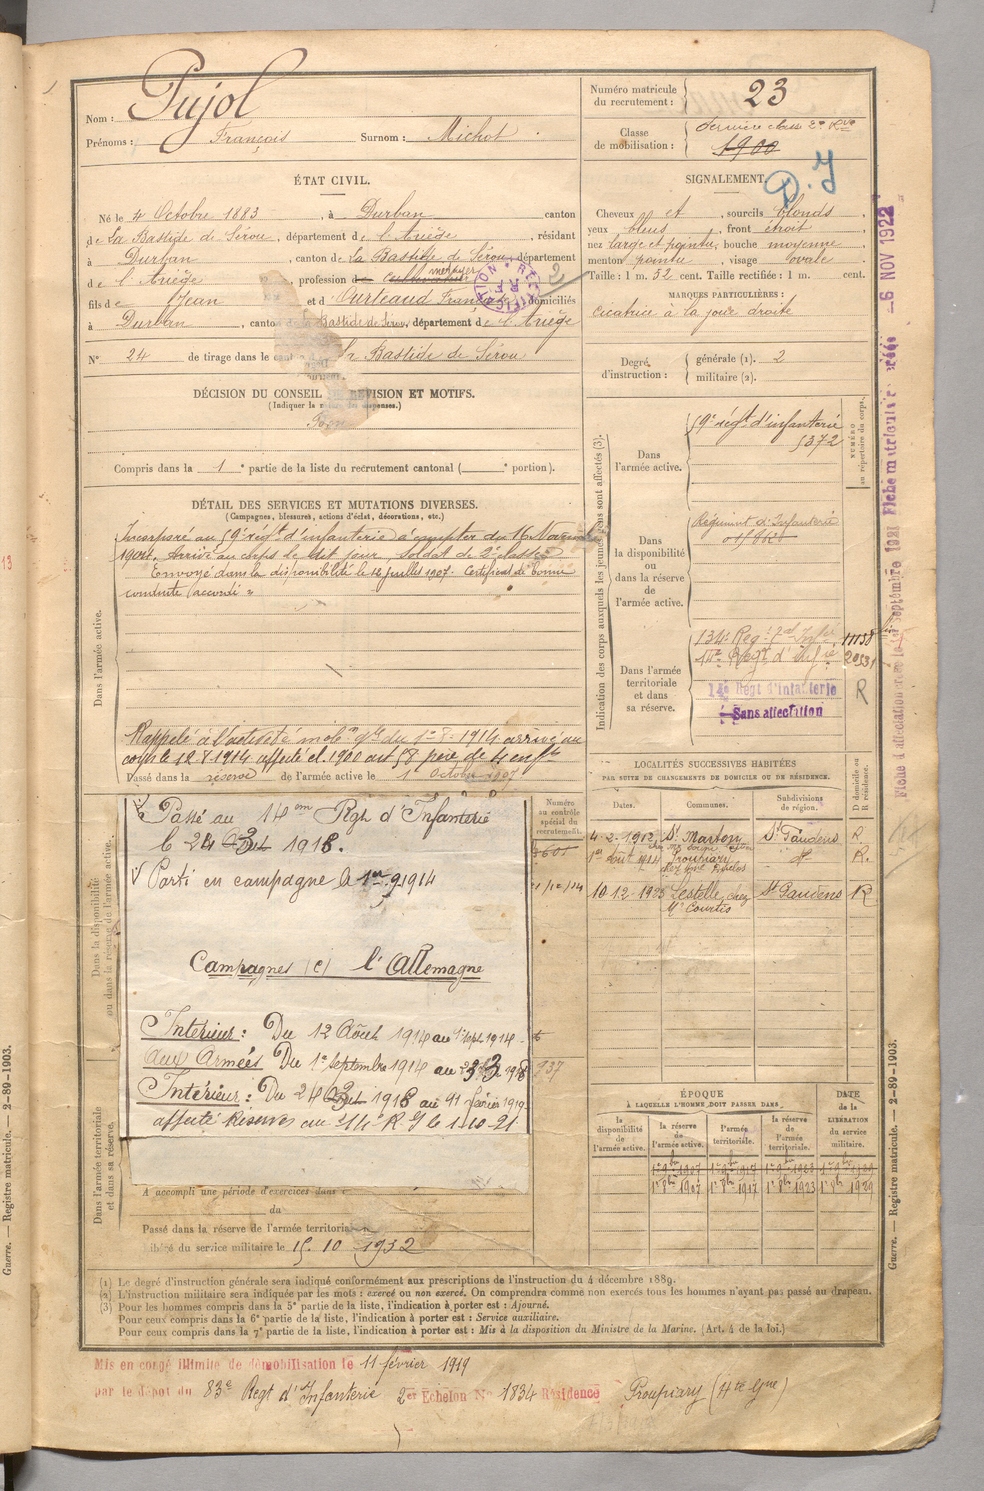 Nom : Pujol
Prénoms : François Surnom : Michot
Numéro matricule
du recrutement : 23
Classe
de mobilisation : dernière classe 2e Rve
1900
D. J
ÉTAT CIVIL.
Né le 4 Octobre 1883, à Durban canton
de La Bastide de Sérou, département de l'Ariège, résidant
à Durban, canton de la Bastide de Sérou, département
de l'Ariège, profession de cultivateur
fils de Jean et de Françoise domiciliés
à Durban, canton de la Bastide de Sérou, département de l'Ariège
RECTIFICATION
2
N° 24 de tirage dans le canton de La Bastide de Sérou
SIGNALEMENT.
Cheveux et, sourcils blonds,
yeux bleus, front étroit,
nez large et pointu, bouche moyenne,
menton pointu, visage ovale.
Taille : 1 m. 52 cent. Taille rectifiée : 1 m. cent.
MARQUES PARTICULIÈRES :
Cicatrice à la joue droite
Degré
d'instruction :
générale (1). 2
militaire (2).
DÉCISION DU CONSEIL DE REVISION ET MOTIFS.
(Indiquer la nature des dispenses.)
Bon
Compris dans la 1e partie de la liste du recrutement cantonal (e portion).
DÉTAIL DES SERVICES ET MUTATIONS DIVERSES.
(Campagnes, blessures, actions d'éclat, décorations, etc.)
Dans l'armée active.
Incorporé au 59e régt d'infanterie à compter du 16 Novembre
1904. Arrivé au corps le dit jour, soldat de 2e classe
Envoyé dans la disponibilité le 12 Juillet 1907. Certificat de bonne
conduite accordé
Rappelé à l'activité arrivé au
corps le 12.8.1914 affecté cl. 1900 art 58 père de 4 enfts
Passé dans la réserve de l'armée active le 1 Octobre 1907
Dans la disponibilité
ou dans la réserve de l'armée active.
Passé au 14em Régt d'Infanterie
le 24 3 1918.
Parti en campagne le 1er.9.1914
Campagnes (c) l'Allemagne
Intérieur : Du 12 Août 1914 au
Aux Armées Du 1er Septembre 1914 au 23 3 1918
Intérieur : Du 24 3 1918 au 11 février 1919
affecté Réserves au 14e R.I le 1-10-21
Dans l'armée territoriale
et dans sa réserve.
A accompli une période d'exercices dans
du
Passé dans la réserve de l'armée territoriale
libéré du service militaire le 15. 10 1932
Numéro
au contrôle
spécial du
recrutement.
Indication des corps auxquels les jeunes gens sont affectés (3).
NUMÉRO
au répertoire du corps.
Dans
l'armée active.
59e régt d'infanterie
5372
Dans
la disponibilité
ou
dans la réserve
de
l'armée active.
Régiment d'Infanterie
Dans l'armée
territoriale
et dans
sa réserve.
134e Régt d'Infie 11138
Régt d'Infie 20531
14e Régt d'Infanterie
Sans affectation
R
LOCALITÉS SUCCESSIVES HABITÉES
PAR SUITE DE CHANGEMENTS DE DOMICILE OU DE RÉSIDENCE.
Dates. Communes. Subdivisions
de région. D domicile ou
R résidence.
4-2-1912 St Martory St Gaudens R
1er août 1914 Proupiary do R.
10.12.1925 Lestelle chez
Mr Courtis St Gaudens R
ÉPOQUE
À LAQUELLE L'HOMME DOIT PASSER DANS
DATE
de la
LIBÉRATION
du service
militaire.
la
disponibilité
de
l'armée active.
la
réserve
de
l'armée active.
l'armée
territoriale.
la
réserve
de
l'armée
territoriale.
1er 8bre 1907 1er 8bre 1917 1er 8bre 1923 1er 8bre 1929
(1) Le degré d'instruction générale sera indiqué conformément aux prescriptions de l'instruction du 4 décembre 1889.
(2) L'instruction militaire sera indiquée par les mots : exercé ou non exercé. On comprendra comme non exercés tous les hommes n'ayant pas passé au drapeau.
(3) Pour les hommes compris dans la 5e partie de la liste, l'indication à porter est : Ajourné.
Pour ceux compris dans la 6e partie de la liste, l'indication à porter est : Service auxiliaire.
Pour ceux compris dans la 7e partie de la liste, l'indication à porter est : Mis à la disposition du Ministre de la Marine. (Art. 4 de la loi.)
Mis en congé illimité de démobilisation le 11 février 1919
par le dépôt du 83e Regt d'Infanterie 2er Echelon No 1834 Résidence Proupiary (Hte Gne)
Guerre. — Registre matricule. — 2-89-1903.
Guerre. — Registre matricule. — 2-89-1903.
Fiche d'affectation créée le 1er septembre 1921 Fiche matriculaire créée -6 NOV 1922
13